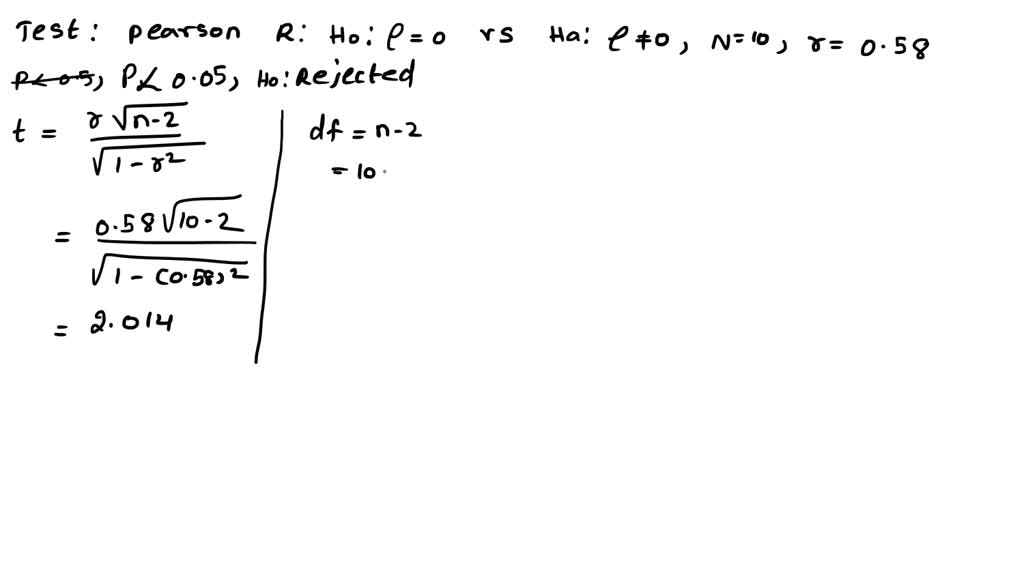 Test: pearson R: Ho: ρ = 0 vs Ha: ρ ≠ 0, N=10, r = 0.58
P< 0.5, P< 0.05, Ho: Rejected
t = r √n-2 / √1 - r²
= 0.58 √10-2 / √1 - (0.58)²
= 2.014
df = n-2
= 10